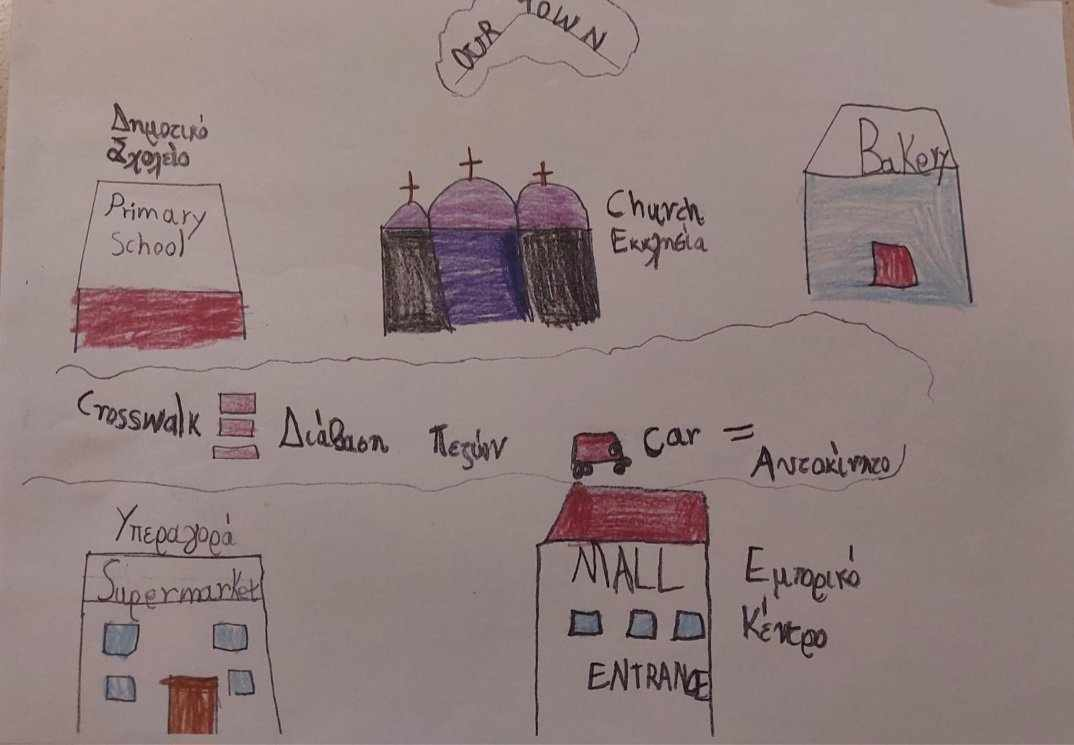 OUR TOWN
Δημοτικό
Σχολείο
Primary
School
Church
Εκκλησία
Bakery
Crosswalk
Διάβαση Πεζών
Car =
Αυτοκίνητο
Υπεραγορά
Supermarket
MALL
ENTRANCE
Εμπορικό
Κέντρο